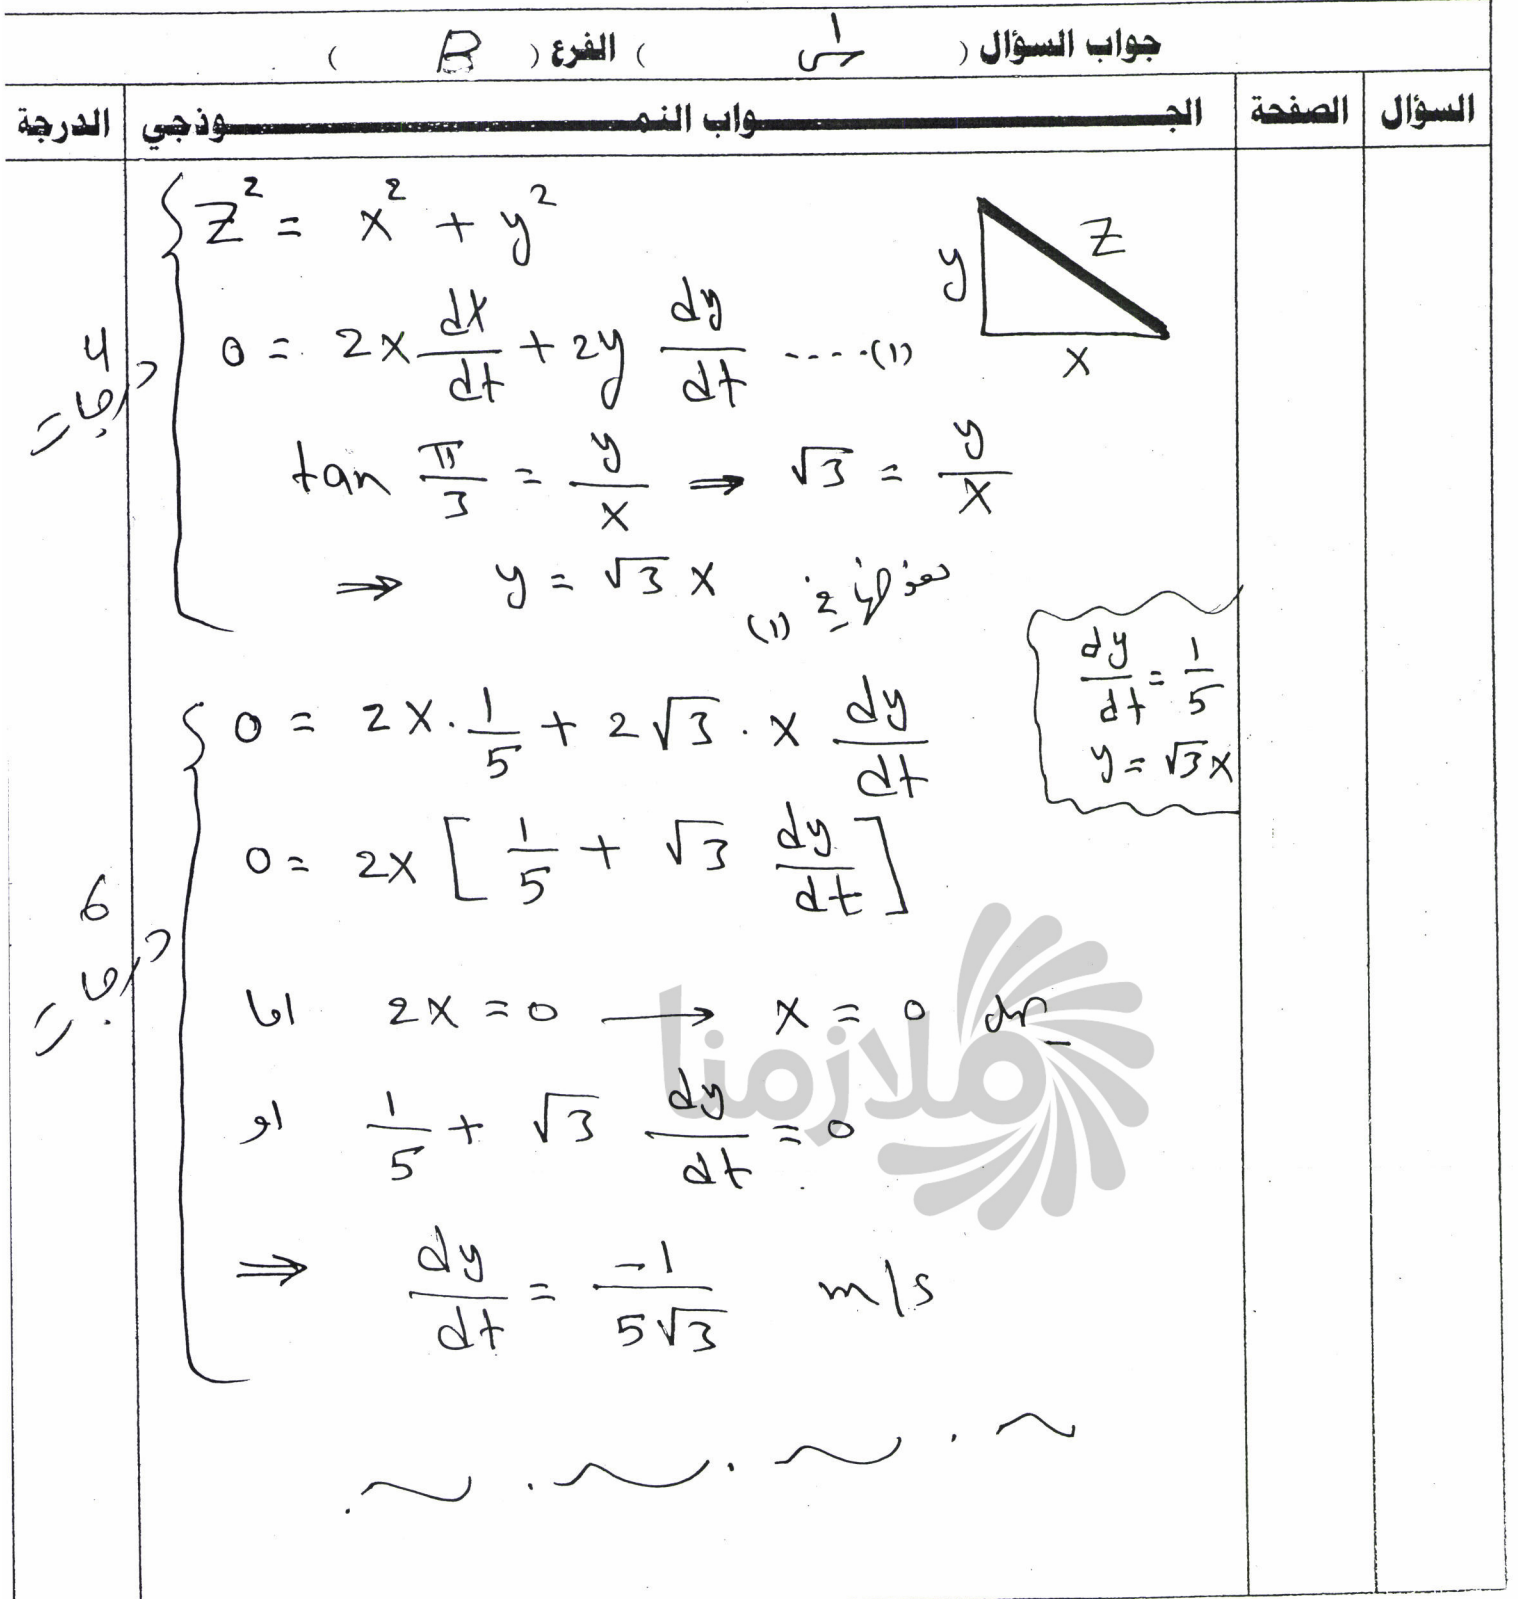 جواب السؤال ( س١ ) الفرع ( B )
السؤال الصفحة الجـــواب النمـــوذجي الدرجة
z² = x² + y²
y z x
0 = 2x dx/dt + 2y dy/dt ----(1)
4 درجات
tan π/3 = y/x ⇒ √3 = y/x
⇒ y = √3 x نعوضها في (1)
dy/dt = 1/5
y = √3 x
0 = 2x . 1/5 + 2√3 . x dy/dt
0 = 2x [ 1/5 + √3 dy/dt ]
6 درجات
اما 2x = 0 → x = 0
او 1/5 + √3 dy/dt = 0
⇒ dy/dt = -1/5√3 m/s
ملازمنا